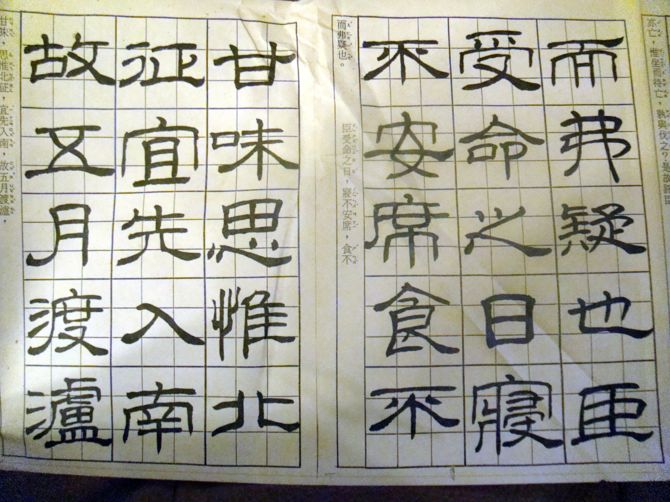 而弗疑也臣
受命之日寢
不安席食不
而弗疑也。
臣受命之日，寢不安席，食不
甘味思惟北
征宜先入南
故五月渡瀘
甘味，思惟北征，宜先入南，故五月渡瀘，